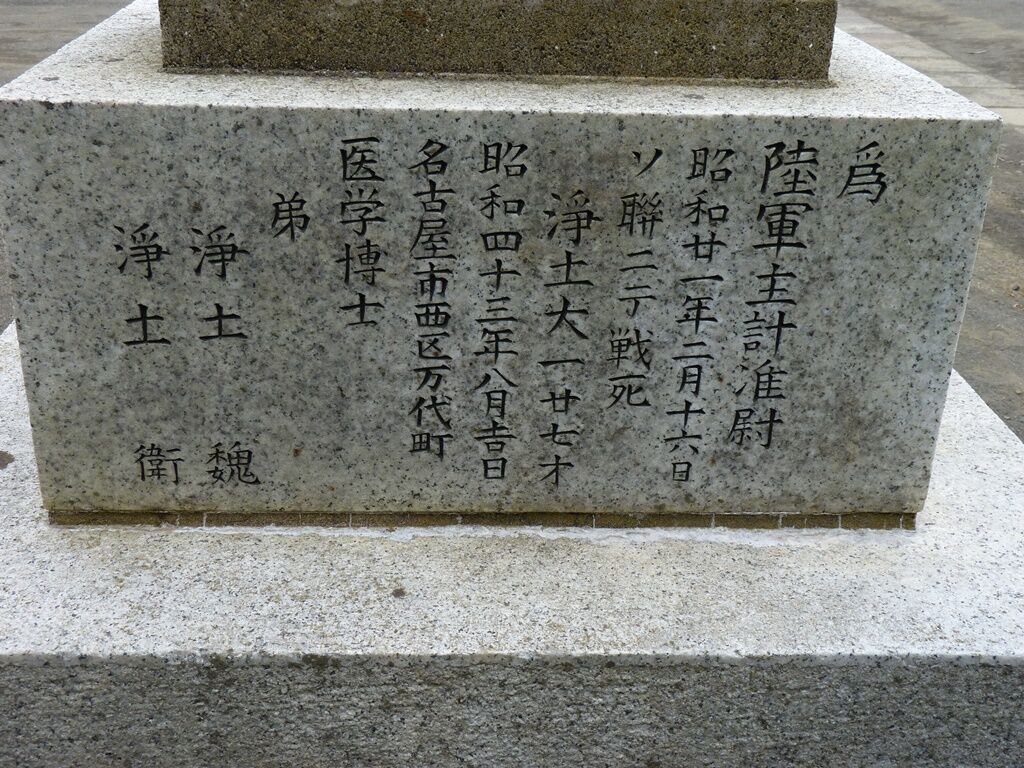 為
陸軍主計准尉
昭和廿一年二月十六日
ソ聯ニテ戦死
淨土大一廿七才
昭和四十三年八月吉日
名古屋市西区万代町
医学博士
弟
淨土巍
淨土衛